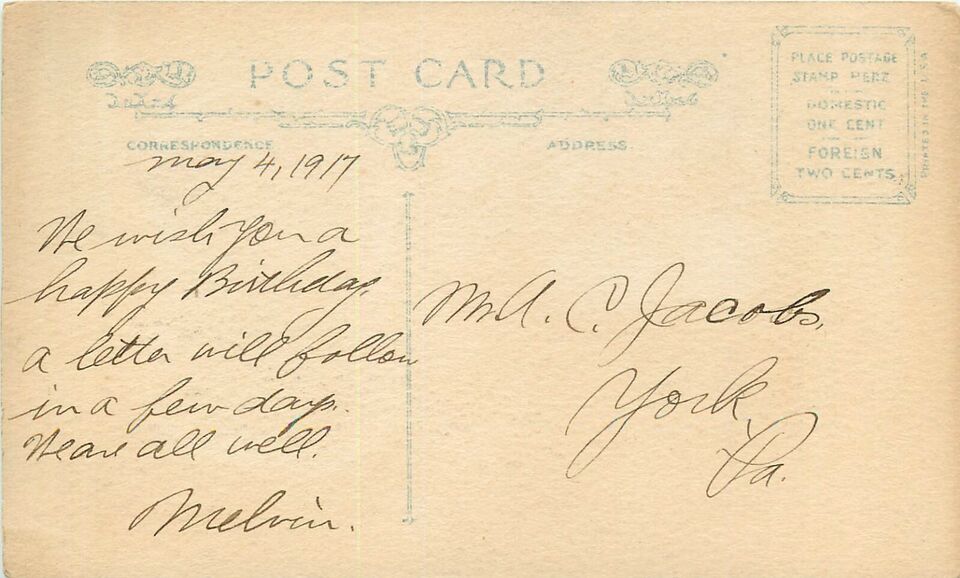 POST CARD
CORRESPONDENCE
ADDRESS
PLACE POSTAGE
STAMP HERE
DOMESTIC
ONE CENT
FOREIGN
TWO CENTS
PRINTED IN THE U.S.A.
may 4, 1917
We wish you a
happy Birthday.
a letter will follow
in a few days.
We are all well.
Melvin.
Mr A. C. Jacobs,
York,
Pa.